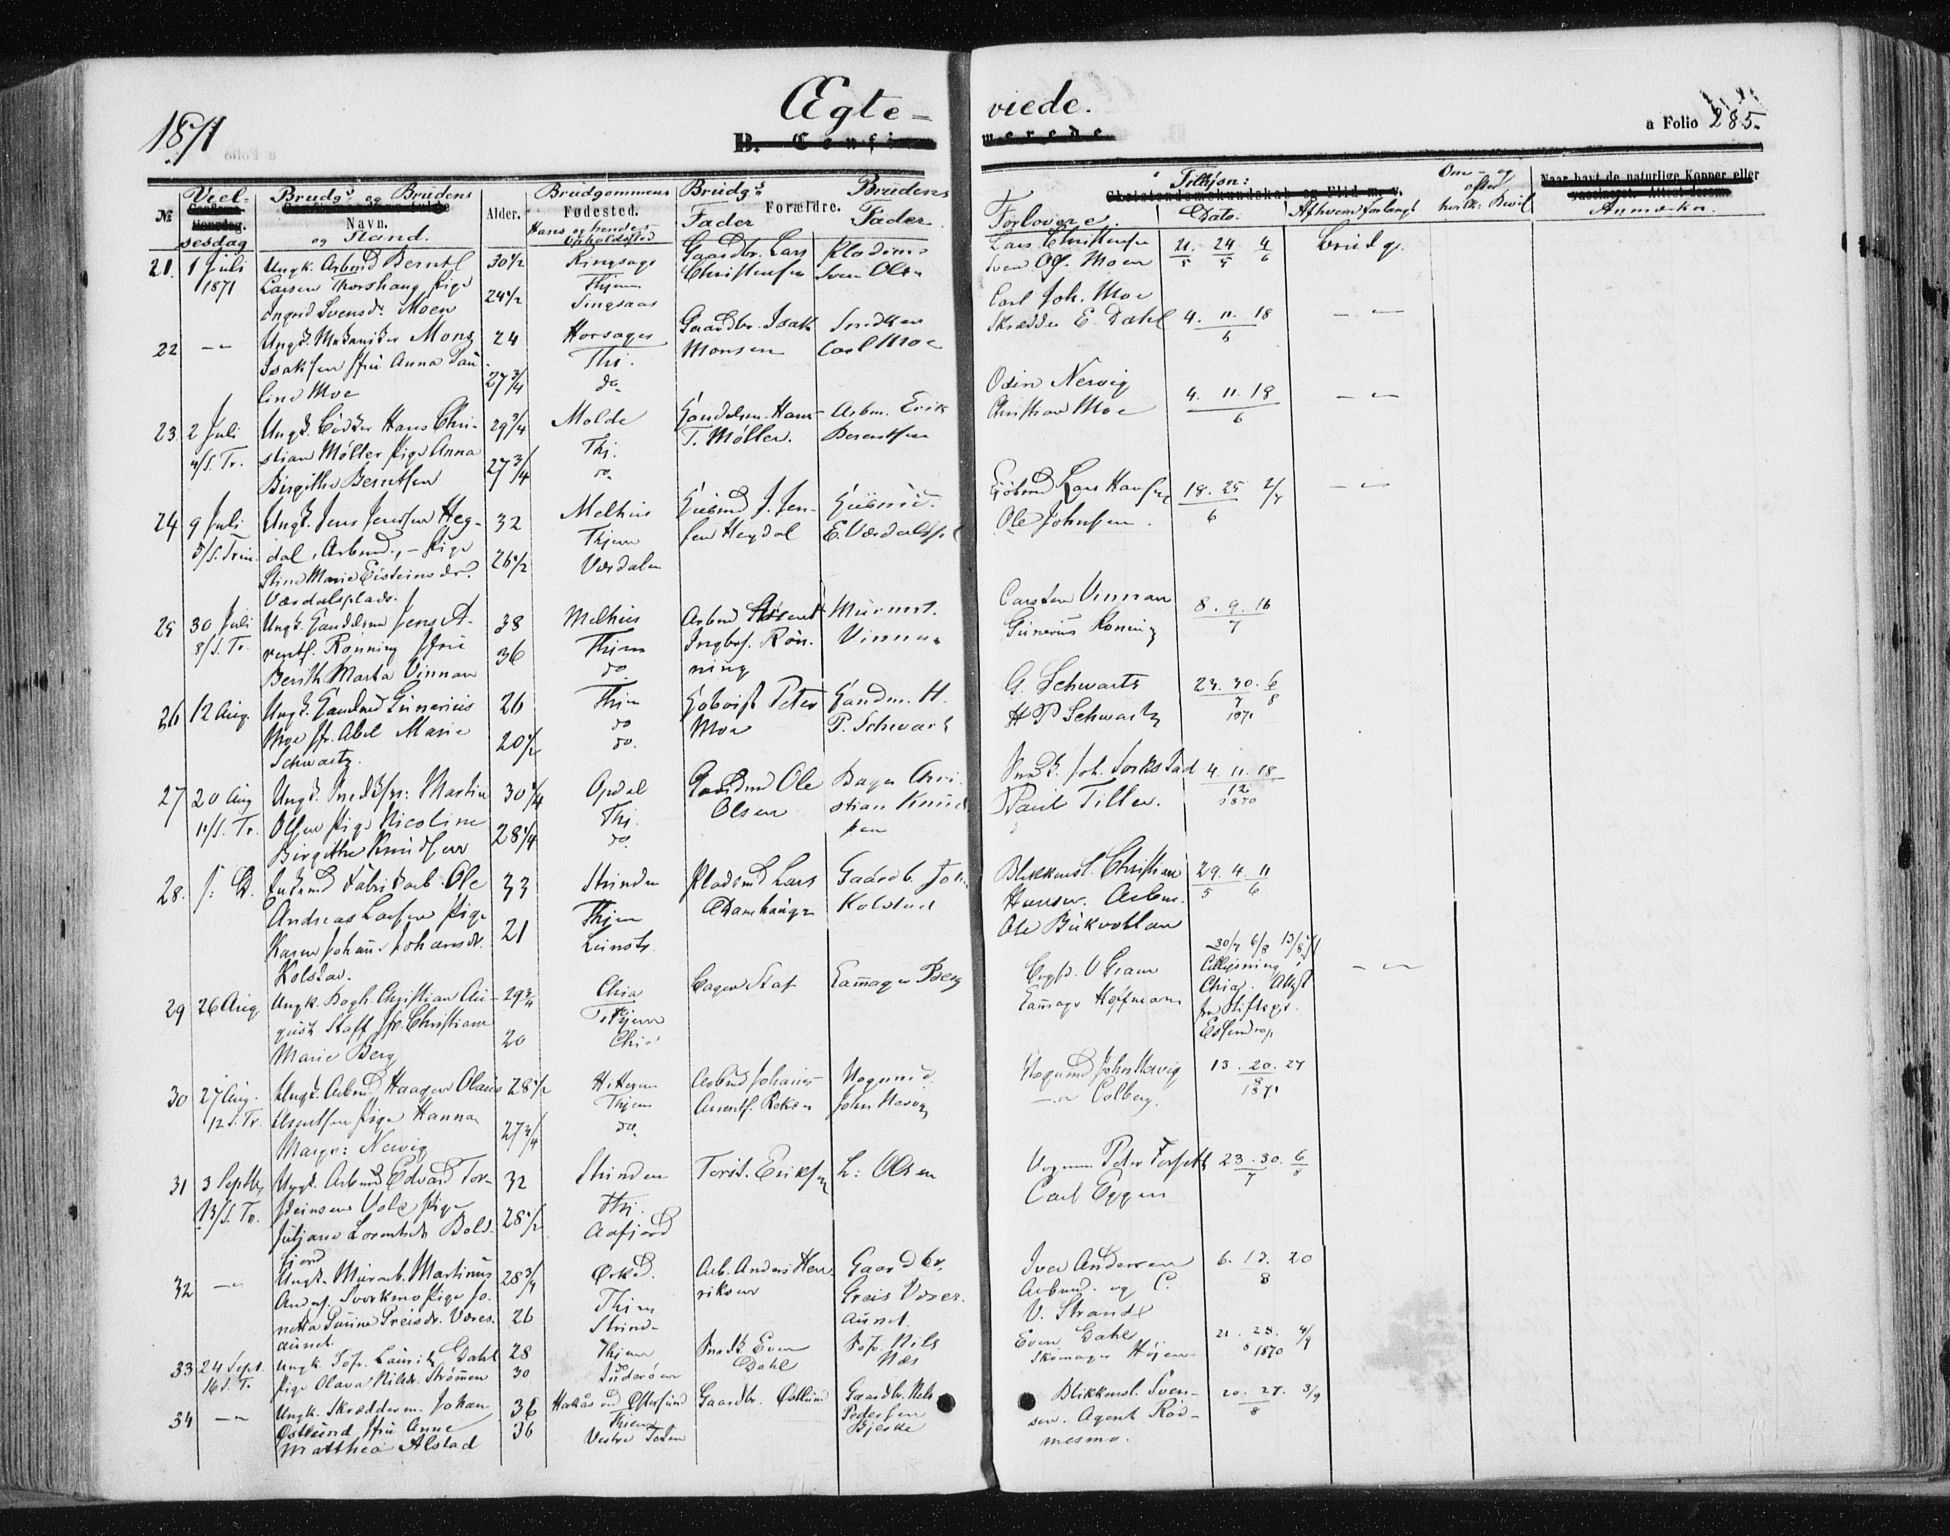 1871
Ægte-
viede.
B. Confir
merede
a Folio 285.
№
Viel-
sesdag
Brudgs og Brudens
Navn.
og Stand.
Alder.
Brudgommens
Fødested.
Hans og hendes
Opholdssted
Brudgs
Fader
Forældre.
Brudens
Fader
Forlovere
Tillysn:
Christendomskundskab og Flid m. v.
Dato.
Af hvem forlangt
Om- og
efter
hvilk: Bevil
Naar havt de naturlige Kopper eller
Anmærkn.
21. 1 Juli 1871
Ungk. Arbmd Berntl
Larsen Thorshaug Pige
Ingrid Svensdr. Moen
30 1/2
24 1/2
Ringsage
Thjem
Singsaas
Gaardbr. Lars
Christensen
Pladsmd
Sven Olsn
Lars Christensen
Sven Ols. Moen
21. 24 4
5 5 6
Brudg.
22 -"-
Ungk. Mekaniker Mons
Isaksen Jfru Anna Pau
line Moe
24
27 3/4
Thj.
do
Gaardbr. Isak
Monsen
Snedker
Carl Moe
Carl Joh. Moe
Skrædder E. Dahl
4. 11. 18
-"-
23. 2 Juli
4/S. Tr.
Hans Chri-
stian Møller Pige Anna
Birgithe Berntsen
29 3/4
27 3/4
Molde
Thj.
do.
Handelsm. Hans
T. Møller.
Arbm. Erik
Berentsen
Odin Nervig
Christian Moe
4. 11. 18
6
-"-
24 9 Juli
5/S. Trin.
Ungk. Jens Jensen Heg-
dal, Arbmd., - Pige
Stine Marie Eisteinsdr.
Værdalsplads.
32
26 1/2
Melhus
Thjem
Værdalen
Huusmd J. Jen-
sen Hegdal
Huusmd.
E. Værdalspl
Lars Hansen
Ole Johnsen.
18. 25 2/7
6
-"-
25 30 Juli
8/S. Tr.
Ungk. Handelsmd Jens A-
rents. Rønning Jfru
Berith Marta Vinnan
38
36
Melhus
Thjem
do
Arbmd Arent
Ingbrs. Røn-
ning
Murmst.
Vinnan
Carsten Vinnan
Gunerius Roning
8. 9. 16
7
26 12 Aug.
Ungk. Handelsmd Gunerius
Moe Jfr. Abel Marie
Schwartz.
26
20 1/2
Thjem
do
do.
Peter
Moe
Handm. H.
P. Schwartz
G. Schwartz
H P Schwartz
23. 30. 6
7 8
1871
27 20 Aug
11/S. Tr.
Ungk. Snedksv: Martin
Olsen Pige Nicoline
Birgitha Knudsen
30 1/4
28 1/4
Opdal
Thj.
do.
Gaardmd Ole
Olsen
Bager Chri-
stian Knud
sen
Snedk. Joh. Sorkstad
Paul Tiller.
4. 11. 18
12
1870
28. s. D.
Enkemd Fabrikarb. Ole
Andreas Larsen Pige
Karen Johan. Johansdr.
Kolstad.
33
21
Strinden
Thjem
Leinstr.
Pladsmd Lars
Adamhaugen
Gaardb. Joh.
Kolstad
Blikkensl. Christian
Hansen. Arbm.
Ole Bukvollan
29. 4. 11
5 6
29 26 Aug.
Ungk. Bogh. Christian Au-
gust Staff Jfr. Christiane
Marie Berg
29 3/4
20
Chria
Thjem
Chria
Bager Staf
Farmager Berg
V Gram
Hoffman
30/7 6/8 13/8 71
Tillysning i
Chria. Attest
fra Stiftspr.
Essendrop.
-"-
30 27 Aug.
12 S. Tr.
Ungk. Arbmd Haagen Olaus
Arentsen Pige Hanna
Margr: Nervig
28 1/2
27 3/4
Hitteren
Thjem
do.
Arbmd Johannes
Arentsen
Vognmd.
John Nervig
Vognmd John Nervig
-"- Colberg.
13. 20. 27
8
1871
31 3 Septbr
13/S. Tr.
Ungk. Arbmd Edvard Tor-
steinsen Vole Pige
Juljane Lorentsdr Bols-
fjord
32
28 1/2
Strinden
Thj.
Aafjord
Torst. Eriksen
L: Olsen
Vognm. Peter Forseth
Carl Eggen
23. 30. 6
7 8
32 -"-
Ungk. Murarb. Martinus
Anders. Svorkmo Pige Jo-
netta Pauline Preisdr. Væres-
aunet.
28 3/4
26
Ørked.
Thjem
Strind-
Arb. Anders Hen-
riksen
Gaardbr.
Greis Væres-
aunet.
Iver Andersen
Arbmd. og C.
V. Strand
6. 13. 20
8
33 24 Sept.
16 S. Tr.
Ungk. Søf. Lauritz Dahl
Pige Olava Nilsdr. Strømmen
28
30
Thjem
Inderøen
Snedk. Even
Dahl
Sof. Nils
Næs
Even Dahl
Skomager Højem
21. 28. 4/9
8 1870
34 -"-
Ungk. Skrædderm. Johan
Østlund Jfru Anne
Matthea Alstad
36
36
Hakås ved Østersund
Thjem
Vestre Toten
Gaardbr. Østlund
Gaardbr. Nels
Pedersen
Bjerke
Blikkensl. Sven-
sen. Agent Rød-
mesmo.
20. 27. 3/9
8